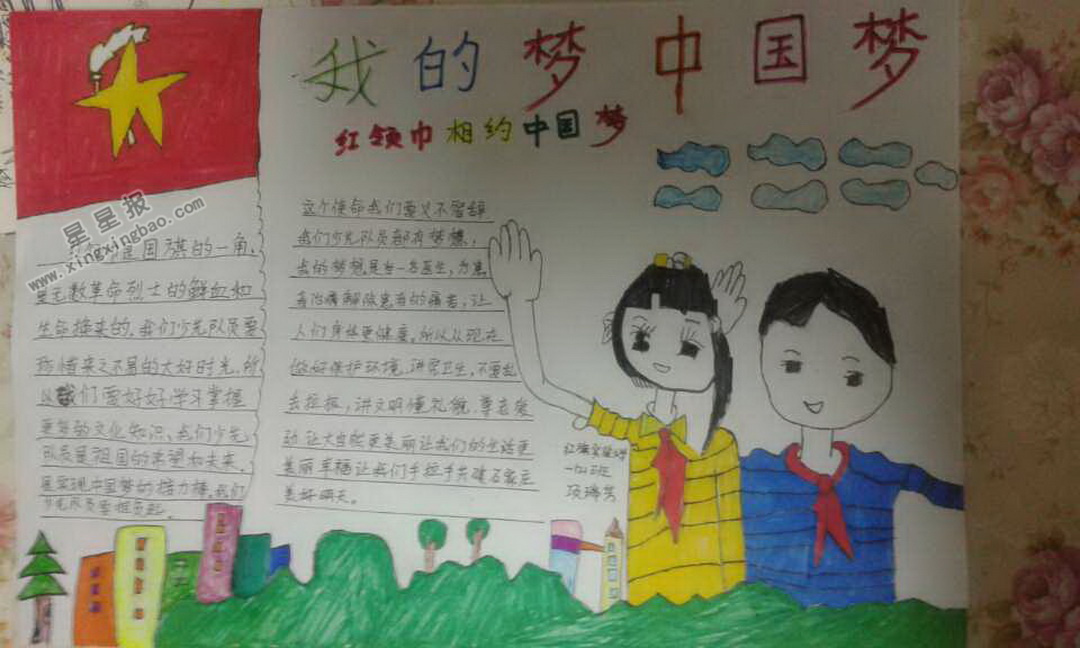 我的梦中国梦
红领巾相约中国梦
星星报
www.xingxingbao.com
是国旗的一角,
是无数革命烈士的鲜血和
生命换来的,我们少先队员要
珍惜来之不易的大好时光,所
以我们要好好学习掌握
更多的文化知识,我们少先
队员是祖国的希望和未来,
是实现中国梦的接力棒,我们
少先队员要担负起.
这个使命我们要义不容辞
我们少先队员都有梦想,
我的梦想是当一名医生,为患
者治病解除患者的痛苦,让
人们身体更健康,所以从现在
做好保护环境,讲究卫生,不要乱
丢垃圾,讲文明懂礼貌,尊老爱
幼让大自然更美丽让我们的生活更
美丽幸福让我们手拉手共建石家庄
美好明天。
一(4)班
项瑞芳